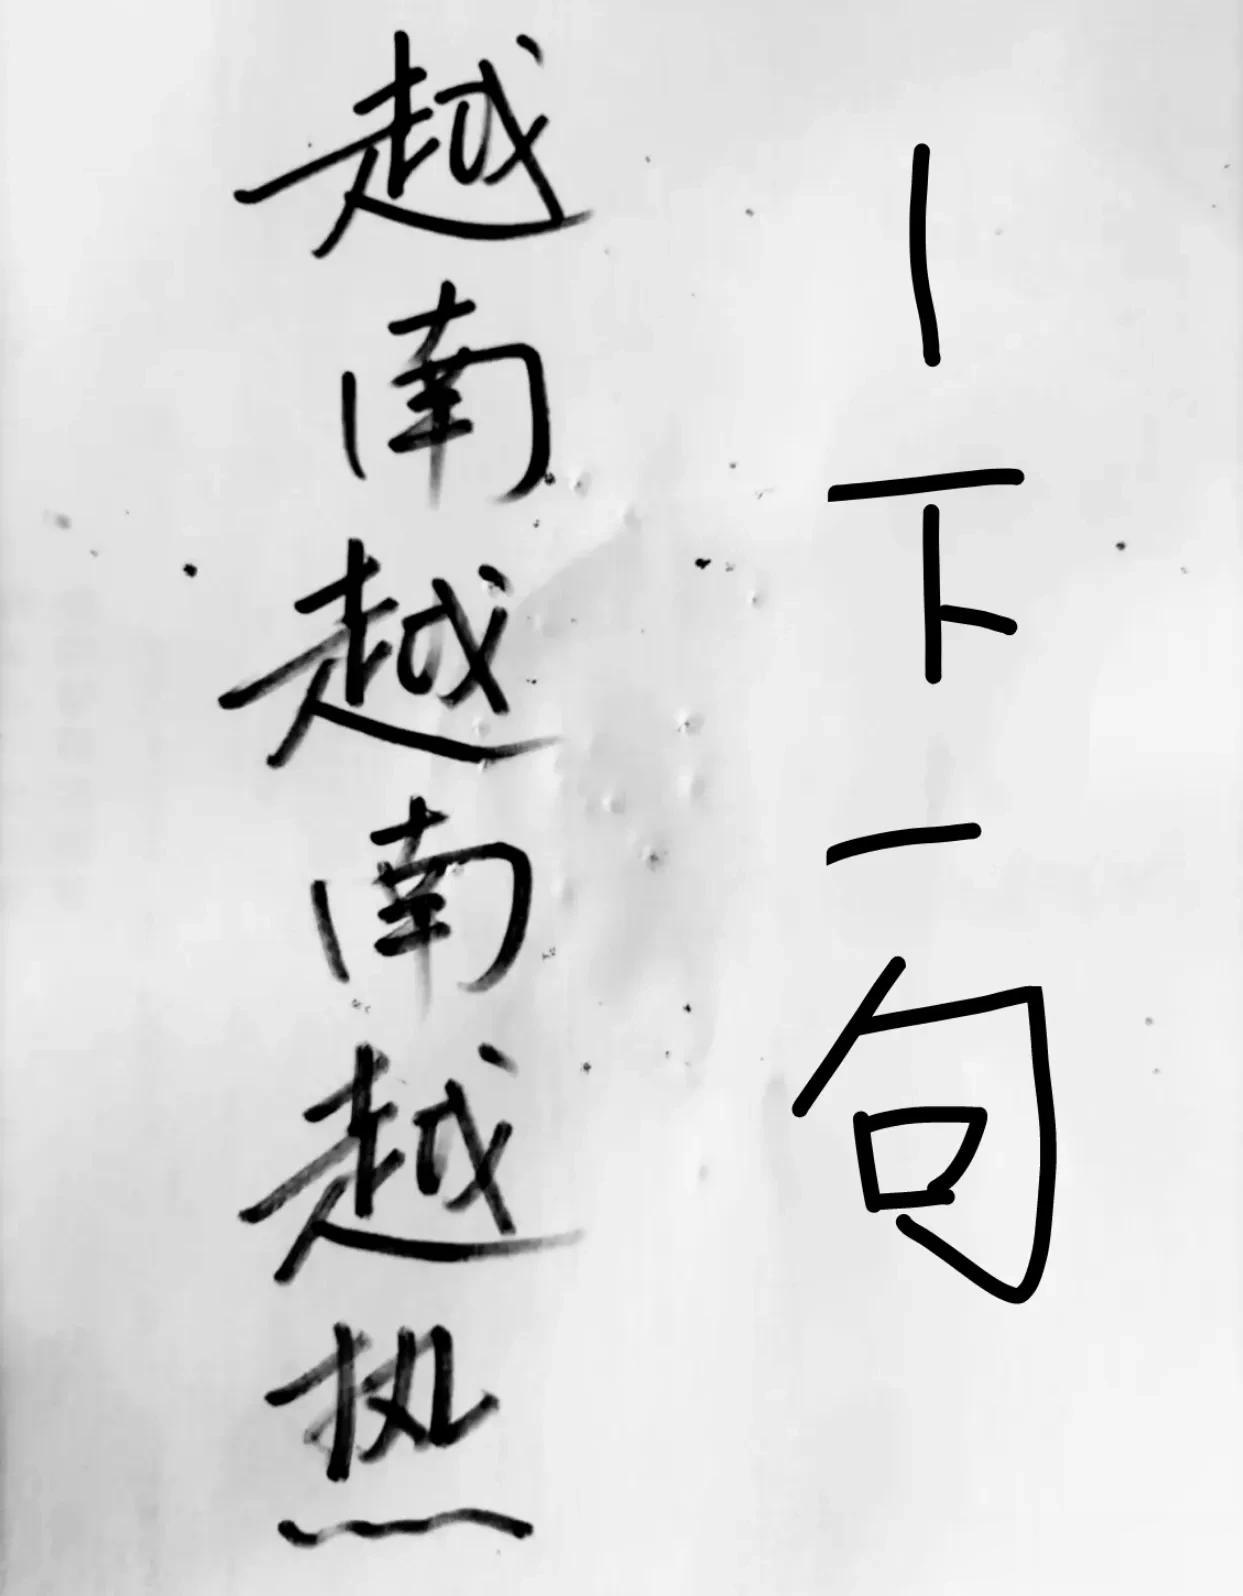 越南越南越热
｜下一句